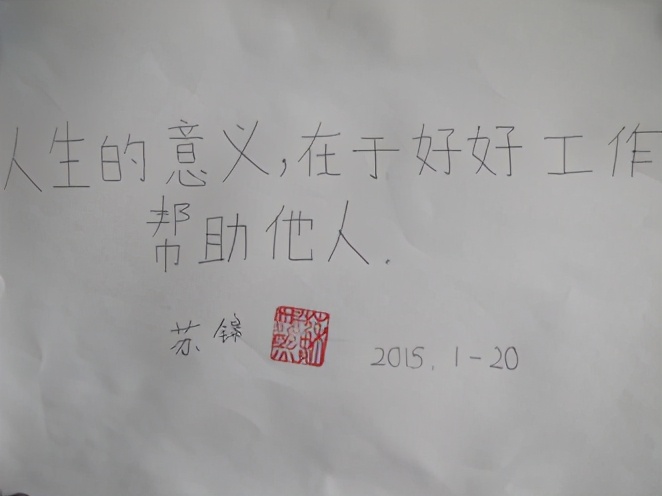 人生的意义,在于好好工作
帮助他人.
苏锦 2015.1-20